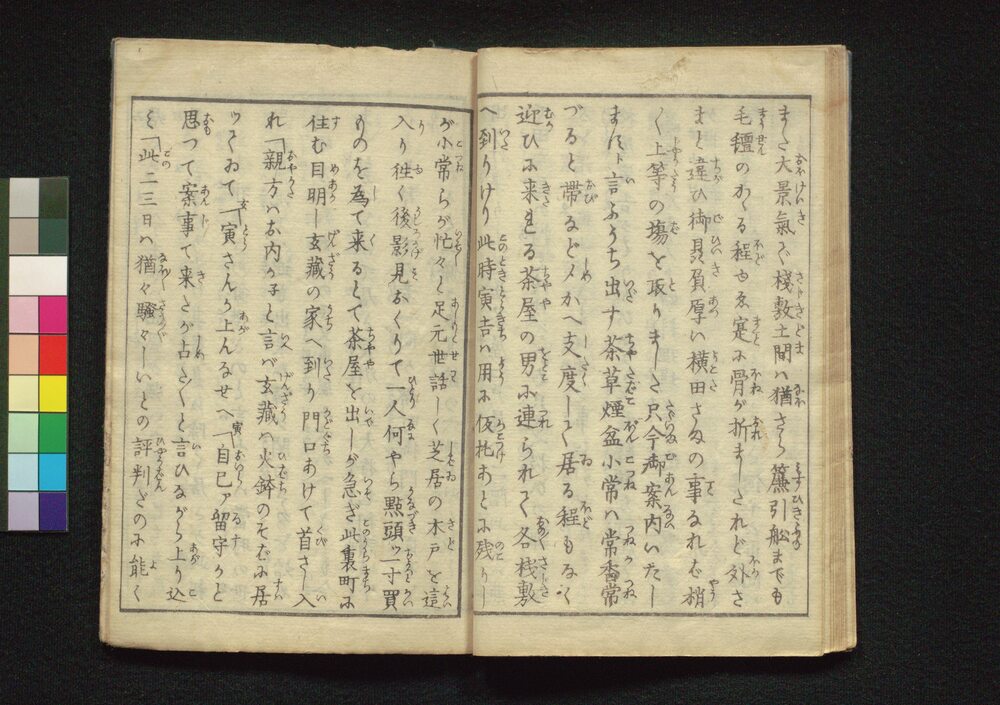 また大景氣で棧敷土間ハ猶さら簾引舩までも
毛氊のかゝる程ゆゑ寔に骨が折ましたれど外さ
まと違ひ御贔負厚い横田さまの事なれバ稍
く上等の塲を取りました只今御案内いたし
ますト言ふうち出す茶草煙盆小常ハ常香常
づると帶などメかへ支度して居る程もなく
迎ひに来れる茶屋の男に連られて各棧敷
へ到りけり此時寅吉ハ用に仮托あとに残りし
が小常らが忙々と足元世話しく芝居の木戸を這
入り徃く後影見おくりて一人何やら點頭ツ一寸買
ものを為て来るとて茶屋を出しが急ぎ此裏町に
住む目明し玄藏の家へ到り門口あけて首さし入
れ「親方ハお内かネと言バ玄藏ハ火鉢のそばに居
ツゝゐて玄「寅さんか上んなせへ寅「自己ァ留守かと
思つて案事て来たが占たゝと言ひながら上り込
ミ「此二三日ハ猶々騒々しいとの評判だのに能く